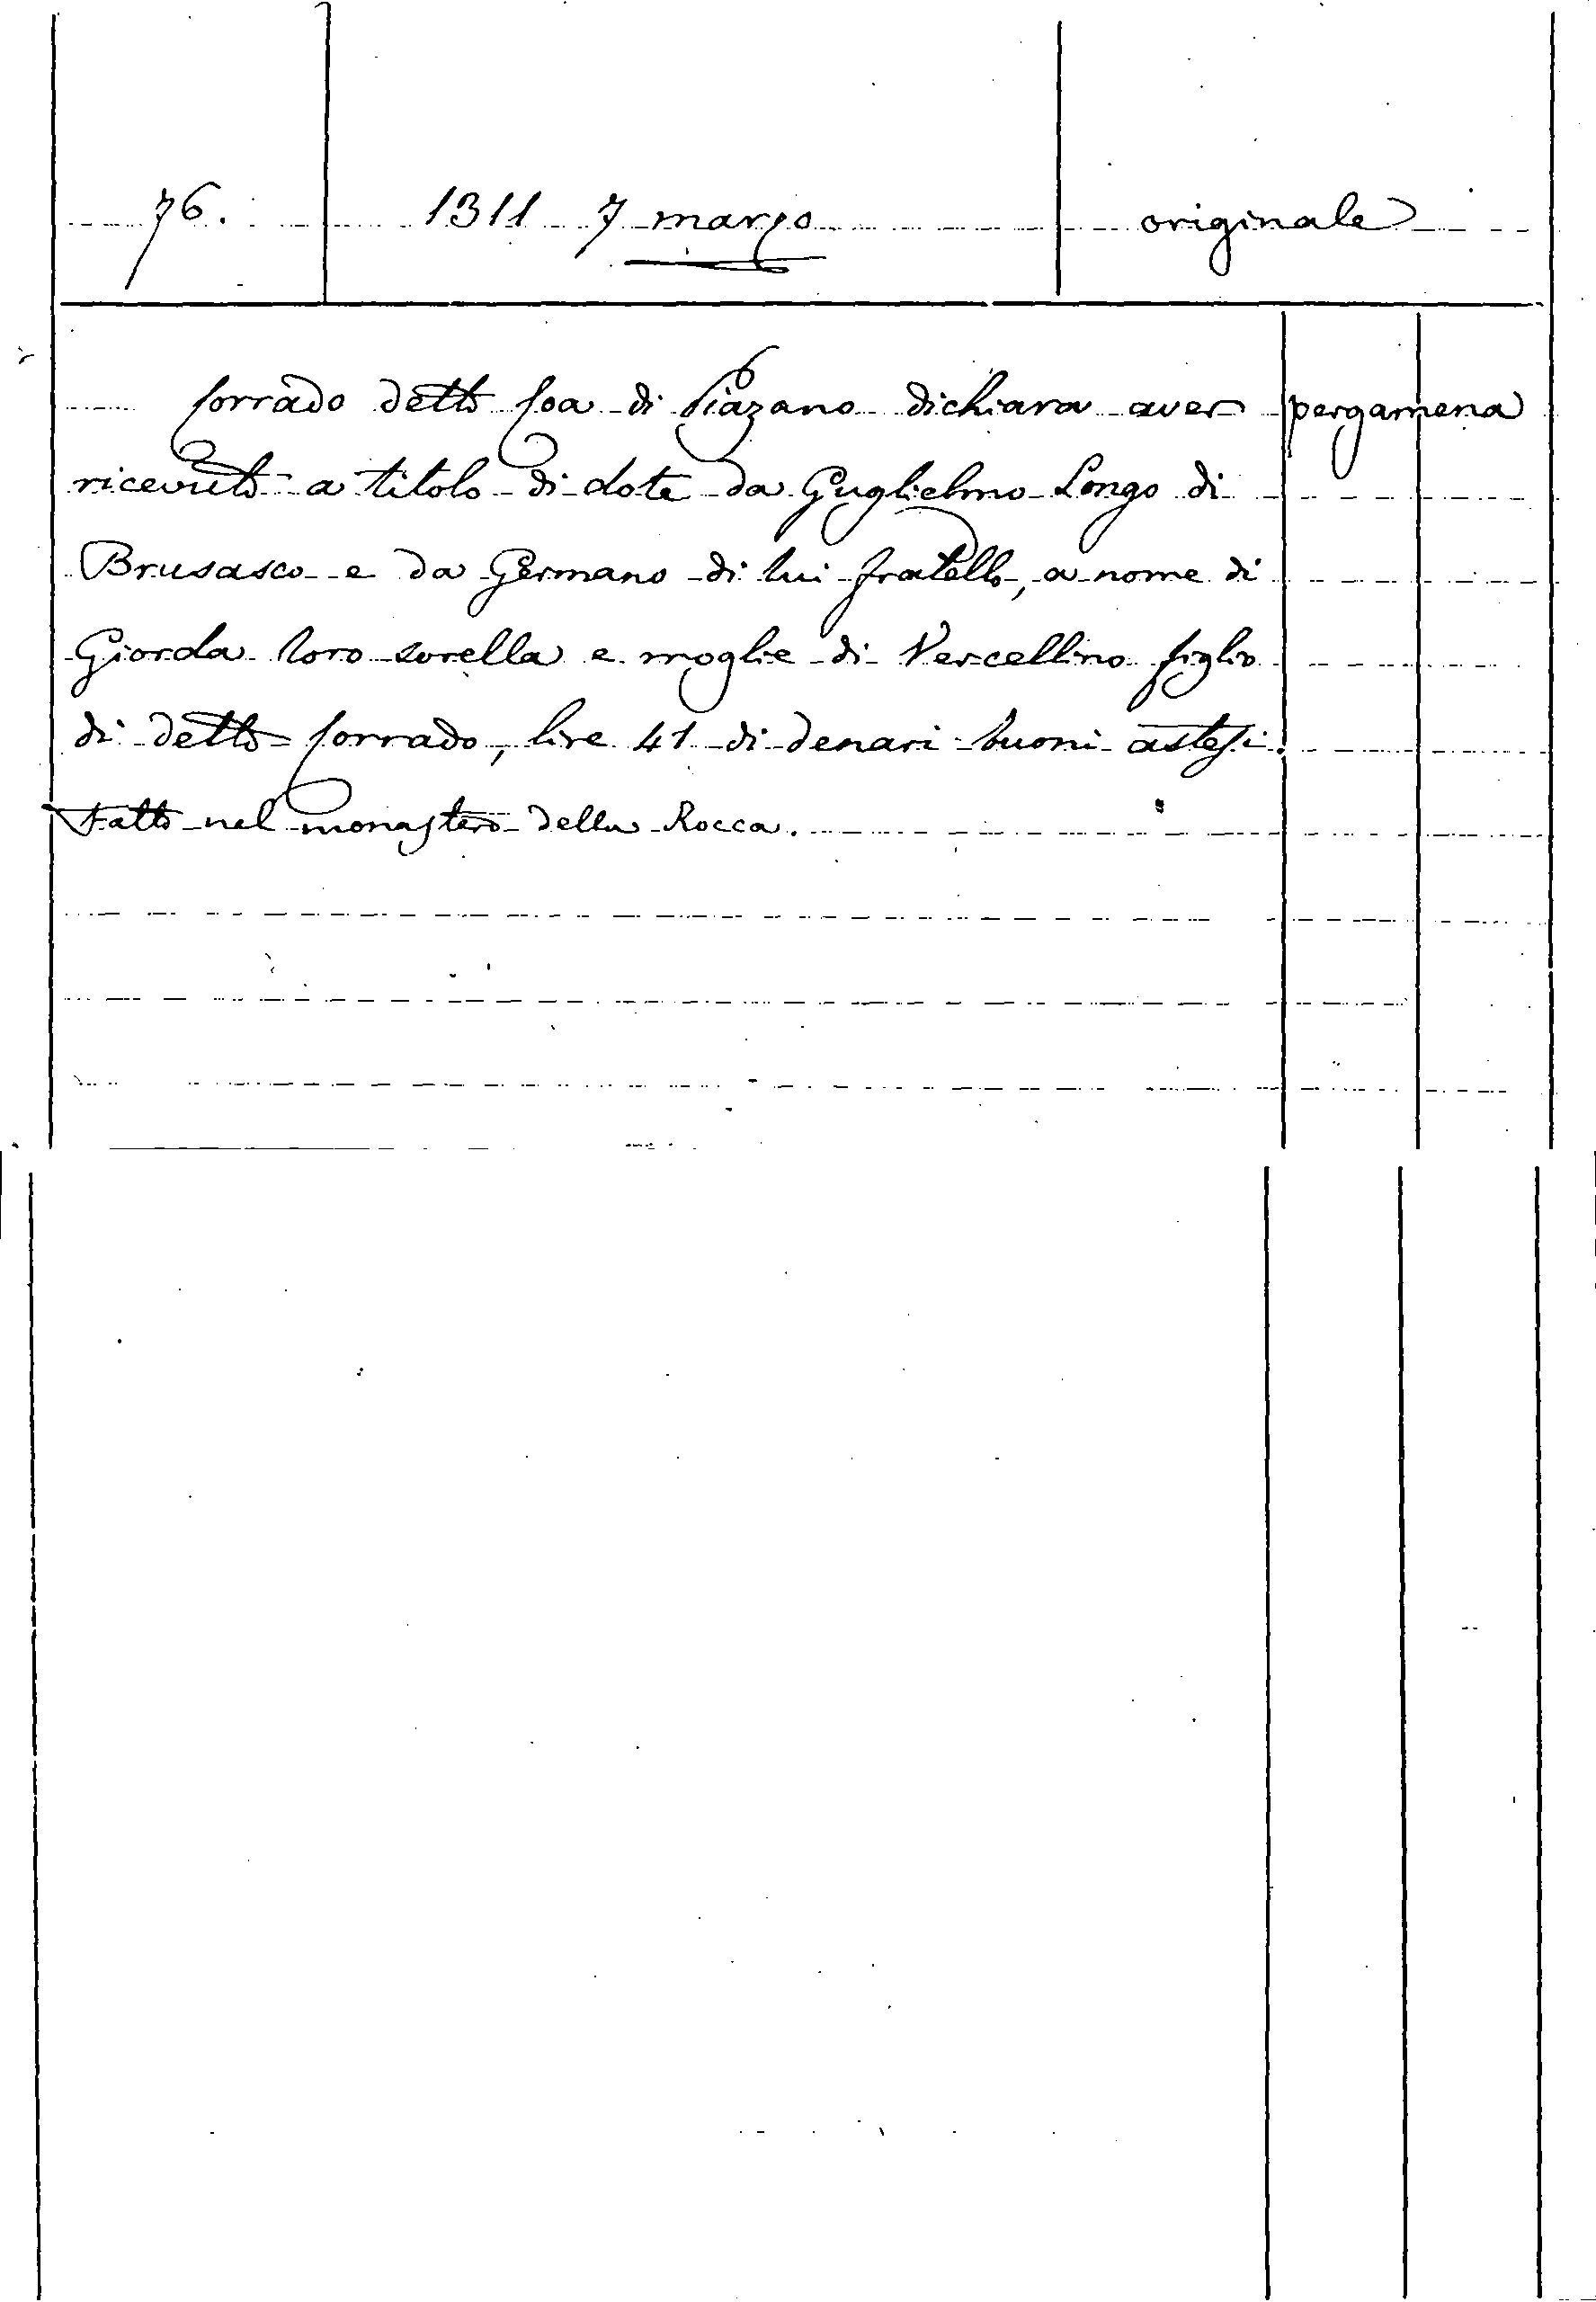 76. 1311 7 marzo originale
Corrado detto Coa di Piazano dichiara aver pergamena
ricevuto a titolo di dote da Guglielmo Longo di
Brusasco e da Germano di lui fratello, a nome di
Giorda loro sorella e moglie di Vercellino figlio
di detto Corrado, lire 41 di denari buoni astesi.
Fatto nel monastero della Rocca.